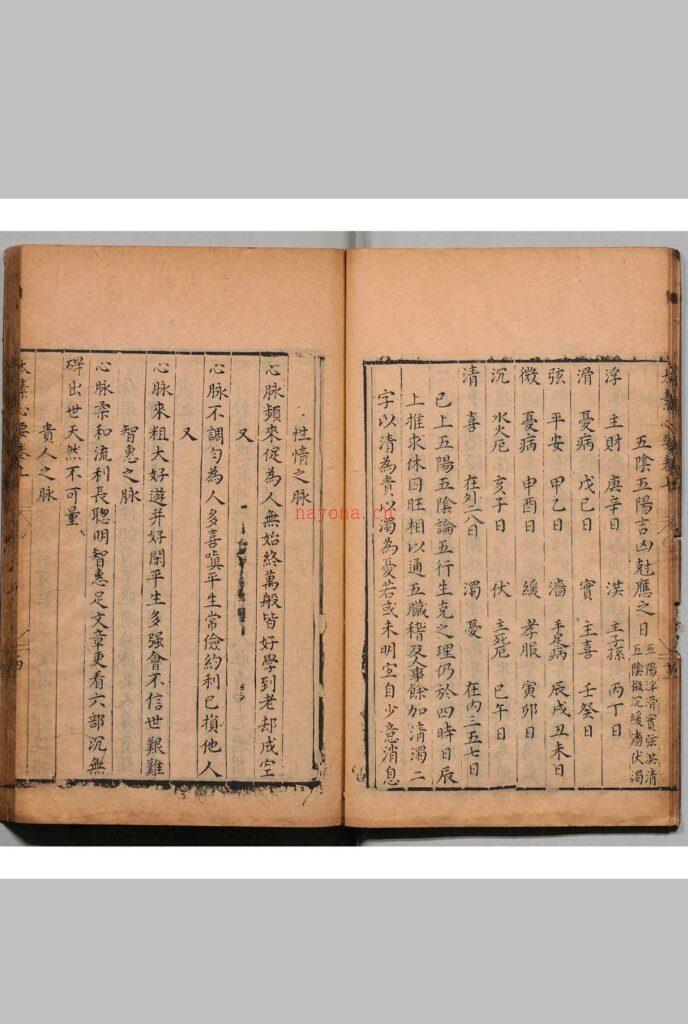 五陰五陽吉凶尅應之日 五陽浮滑實弦洪清 五陰微沉緩濇伏濁
浮 主財 庚辛日 洪 主子孫 丙丁日
滑 憂病 戊己日 實 主喜 壬癸日
弦 平安 甲乙日 濇 手足病 辰戌丑未日
微 憂病 申酉日 緩 孝服 寅卯日
沉 水火厄 亥子日 伏 主死厄 巳午日
清 喜 在外二八日 濁 憂 在內三五七日
已上五陽五陰論五行生克之理仍於四時日辰
上推求休囚旺相以通五臟稽及人事餘加清濁二
字以清為貴以濁為憂若或未明宜自少意消息
性情之脉
心脉頻來促為人無始終萬般皆好學到老却成空
又
心脉不調勻為人多喜嗔平生常儉約利已損他人
又
心脉來粗大好遊并好閑平生多强會不信世艱難
智惠之脉
心脉柔和流利長聰明智惠足文章更看六部沉無
碍出世天然不可量
貴人之脉
太素心要卷上
nayona.cn